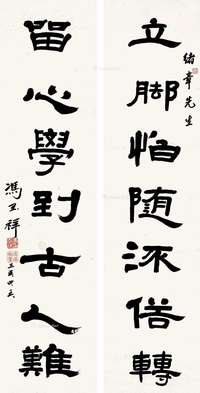 绪章先生
立脚怕随流俗轉
留心學到古人難
馮玉祥